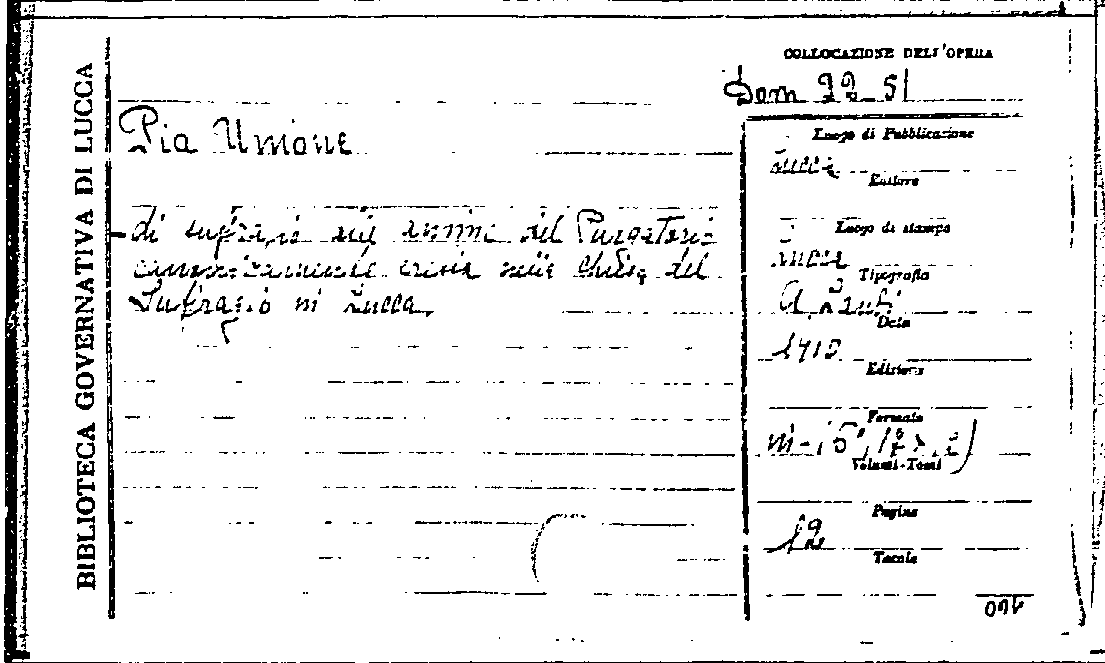 BIBLIOTECA GOVERNATIVA DI LUCCA
COLLOCAZIONE DELL'OPERA
Dom 22 51
Pia Unione
di sufragio alle anime del Purgatorio
canonicamente eretta nella Chiesa del
Sufragio in Lucca.
Luogo di Pubblicazione
Lucca
Editore
Luogo di stampa
Lucca
Tipografia
A.
Data
1910
Edizione
Formato
in-16°
Volumi-Tomi
Pagine
12
Tavole